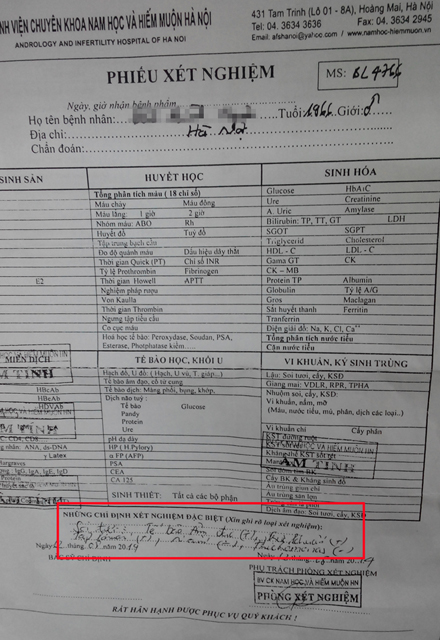 NH VIỆN CHUYÊN KHOA NAM HỌC VÀ HIẾM MUỘN HÀ NỘI
ANDROLOGY AND INFERTILITY HOSPITAL OF HA NOI
431 Tam Trinh (Lô 01 - 8A), Hoàng Mai, Hà Nội
Tel: 04. 3634 3636 Fax: 04. 3634 2945
Email: afshanoi@yahoo.com / www.namhoc-hiemmuon.vn
PHIẾU XÉT NGHIỆM
MS: BL4766
Ngày, giờ nhận bệnh phẩm
Họ tên bệnh nhân: Tuổi: 1966 Giới: ♂
Địa chỉ: Hà Nội
Chẩn đoán:
SINH SẢN HUYẾT HỌC SINH HÓA
Tổng phân tích máu (18 chỉ số) Glucose HbA1C
Máu chảy Máu đông Ure Creatinine
Máu lắng: 1 giờ 2 giờ A. Uric Amylase
Nhóm máu: ABO Rh Bilirubin: TP, TT, GT LDH
Huyết đồ Tuỷ đồ SGOT SGPT
Tập trung bạch cầu Triglycerid Cholesterol
Đo độ quánh máu Dấu hiệu dây thắt HDL - C LDL - C
Thời gian Quick (PT) Chỉ số INR Gama GT CK
Tỷ lệ Prothrombin Fibrinogen CK - MB
E2 Thời gian Howell APTT Protein TP Albumin
Nghiệm pháp rượu Globulin Tỷ lệ A/G
Von Kaulla Gros Maclagan
Thời gian Thrombin Sắt huyết thanh Ferritin
Ngưng tập tiểu cầu Tranferrin
Co cục máu Điện giải đồ: Na, K, Cl, Ca++
Hoá học tế bào: Peroxydase, Soudan, PSA, Tổng phân tích nước tiểu
Esterase, Photphatase kiềm.... Cặn nước tiểu
MIỄN DỊCH TẾ BÀO HỌC, KHỐI U VI KHUẨN, KÝ SINH TRÙNG
ÂM TÍNH
Hạch đồ, U đồ: ( Hạch, U vú, T. giáp...) Lậu: Soi tươi, cấy, KSĐ
Tế bào âm đạo, cổ tử cung Giang mai: VDLR, RPR, TPHA
HBcAb Tế bào dịch: Màng phổi, bụng, khớp, Nhuộm soi, cấy, KSĐ
Dịch não tuỷ: Vi khuẩn, nấm, mỡ
HDVAb Tế bào Glucose (Máu, nước tiểu, mủ, phân, dịch các loại..)
Pandy
Protein Vi khuẩn chí Cấy phân
Ure KST đường ruột
C, CD4, CD8 pH dạ dày
ng nhân: ANA, ds-DNA HP ( H.Pylory)
y Latex α FP (AFP) ÂM TÍNH
Margraves PSA
IgG, IgA, IgE, IgD CEA Cấy BK & Kháng sinh đồ
CA 125 Ấu trùng giun chỉ
SINH THIẾT: Tất cả các bộ phận Ấu trùng sán lợn
Dịch âm đạo: Soi tươi, cấy, KSĐ
NHỮNG CHỈ ĐỊNH XÉT NGHIỆM ĐẶC BIỆT (Xin ghi rõ loại xét nghiệm):
Soi tươi: Tế bào
Trichomonas (-)
2019
BÁC SỸ CHỈ ĐỊNH
PHỤ TRÁCH PHÒNG XÉT NGHIỆM
BV CK NAM HỌC VÀ HIẾM MUỘN HN
PHÒNG XÉT NGHIỆM
RẤT HÂN HẠNH ĐƯỢC PHỤC VỤ QUÝ KHÁCH !